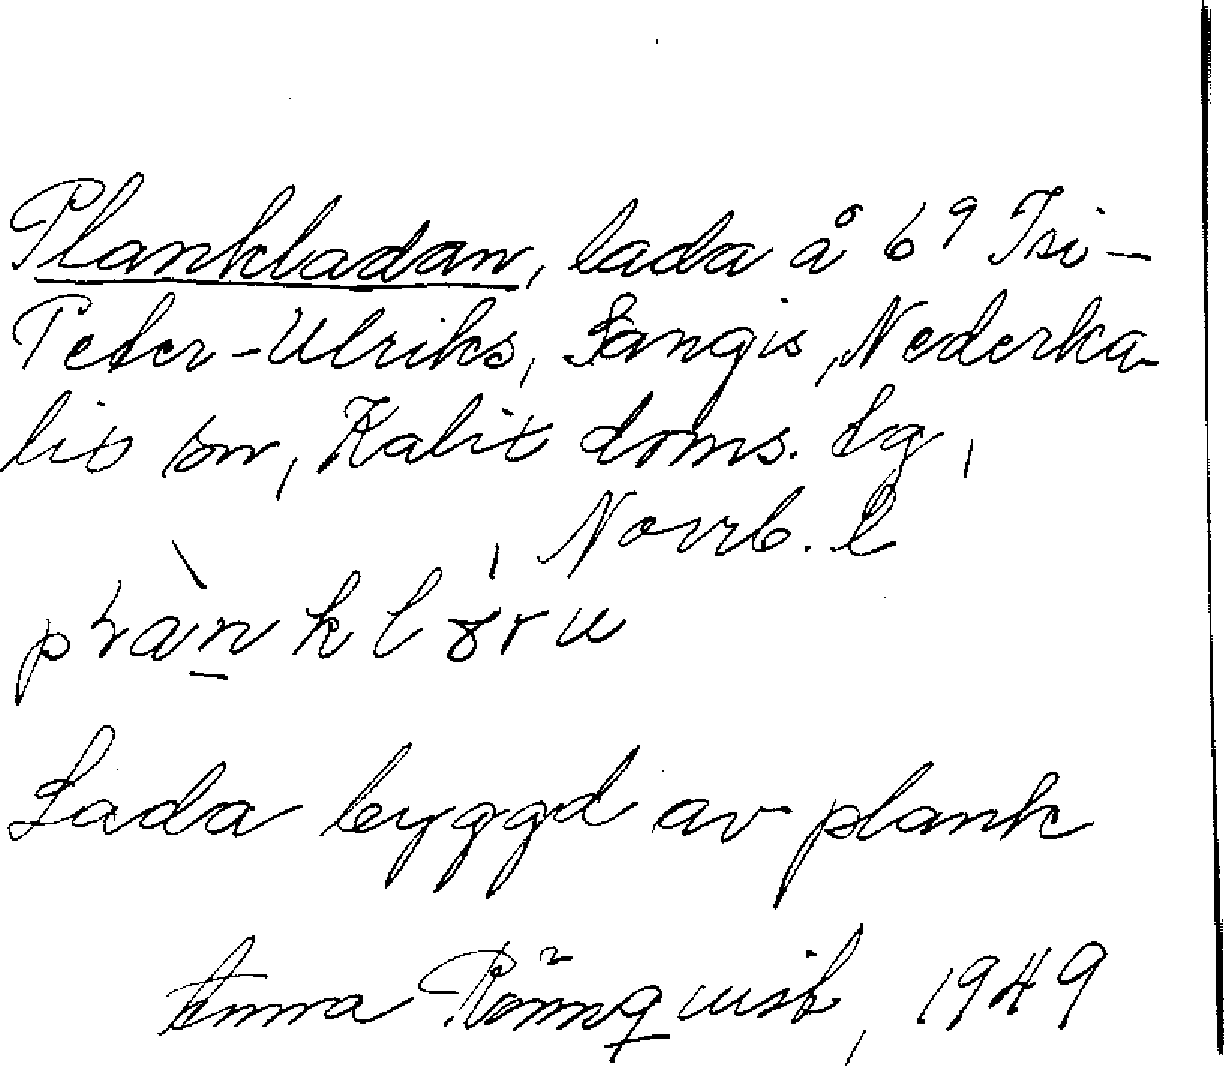 Plankladan, lada å 6⁹ Isi-
Peter-Ulriks, Sangis, Nederka-
lix sn, Kalix doms. lg,
Norrb. l
Lada byggd av plank
Anna Rönnquist, 1949